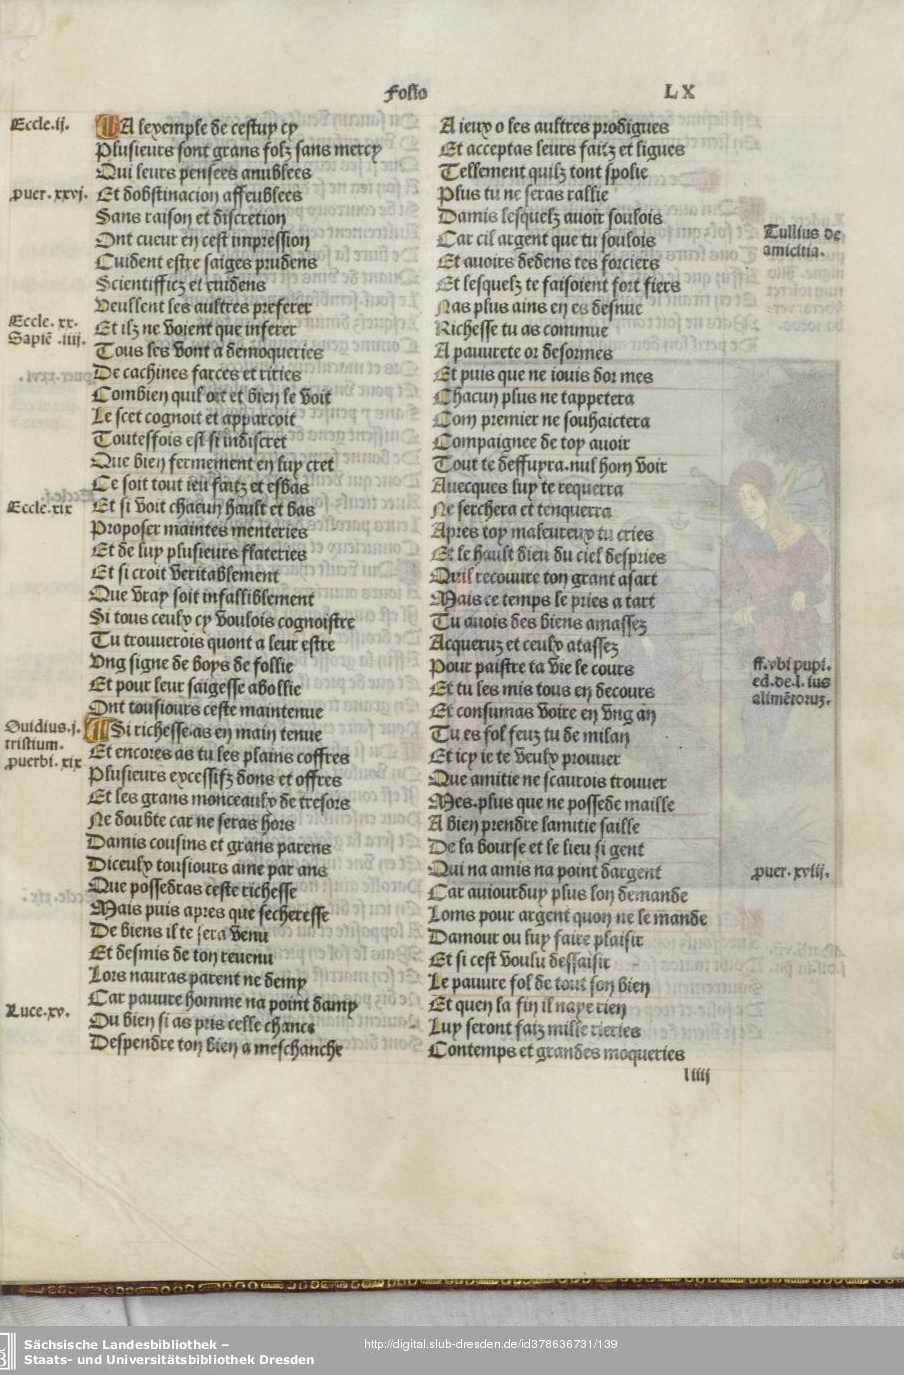 Folio LX
Eccle.ij.
A lexemple de cestuy cy
Plusieurs sont grans folz sans mercy
Qui leurs pensees anublees
puer. xxvj. Et dobstinacion affeublees
Sans raison et discretion
Ont cueur en cest impression
Cuident estre saiges prudens
Scientificz et euidens
Veullent les aultres preferer
Eccle. xx.
Et ilz ne voient que inferer
Sapiē .iiij.
Tous les vont a demoqueries
De cachines farces et riries
Combien quil oit et bien le voit
Le scet cognoit et apparcoit
Toutesfois est si indiscret
Que bien fermement en luy cret
Ce soit tout ieu faitz et esbas
Eccle.xix Et si voit chacun hault et bas
Proposer maintes menteries
Et de luy plusieurs flateries
Et si croit veritablement
Que vray soit infalliblement
Si tous ceulx cy voulois cognoistre
Tu trouuerois quont a leur estre
Vng signe de boys de follie
Et pour leur saigesse abollie
Ont tousiours ceste maintenue
Ouidius.j.
tristium.
Si richesse.as en main tenue
Et encores as tu les plains coffres
puerbi. xix
Plusieurs excessifz dons et offres
Et les grans monceaulx de tresors
Ne doubte car ne seras hors
Damis cousins et grans parens
Diceulx tousiours ame par ans
Que possedras ceste richesse
Mais puis apres que secheresse
De biens il te sera venu
Et desmis de ton reuenu
Lors nauras parent ne demy
Car pauure homme na point damy
Luce.xv.
Ou bien si as pris celle chance
Despendre ton bien a meschanche
A ieux o les aultres prodigues
Et acceptas leurs faitz et ligues
Tellement quilz tont spolie
Plus tu ne seras rallie
Damis lesquelz auoir soulois
Tullius de
amicitia.
Car cil argent que tu soulois
Et auoirs dedens tes forciers
Et lesquelz te faisoient fort fiers
Nas plus ains en es desnue
Richesse tu as commue
A pauurete or desormes
Et puis que ne iouis dor mes
Chacun plus ne tappetera
Com premier ne souhaictera
Compaignee de toy auoir
Tout te deffuyra.nul hom voir
Auecques luy te requerra
Ne serchera et tenquerra
Apres toy maleureux tu cries
Et le hault dieu du ciel despries
Quil recouure ton grant asart
Mais ce temps le pries a tart
Tu auois des biens amassez
Acqueruz et ceulx atassez
Pour paistre ta vie le cours
ff.vbi pupi.
ed.de.l. ius
alimētoruz.
Et tu les mis tous en decours
Et consumas voire en vng an
Tu es fol feuz tu de milan
Et icy ie te veulx prouuer
Que amitie ne scaurois trouuer
Mes.plus que ne possede maille
A bien prendre lamitie faille
De la bourse et le lieu si gent
Qui na amis na point dargent
puer. xviij.
Car auiourduy plus lon demande
Loms pour argent quon ne le mande
Damour ou luy faire plaisir
Et si cest voulu dessaisir
Le pauure fol de tout son bien
Et quen la fin il naye rien
Luy seront faiz mille rieries
Contemps et grandes moqueries
liiij
Sächsische Landesbibliothek –
Staats- und Universitätsbibliothek Dresden
http://digital.slub-dresden.de/id378636731/139